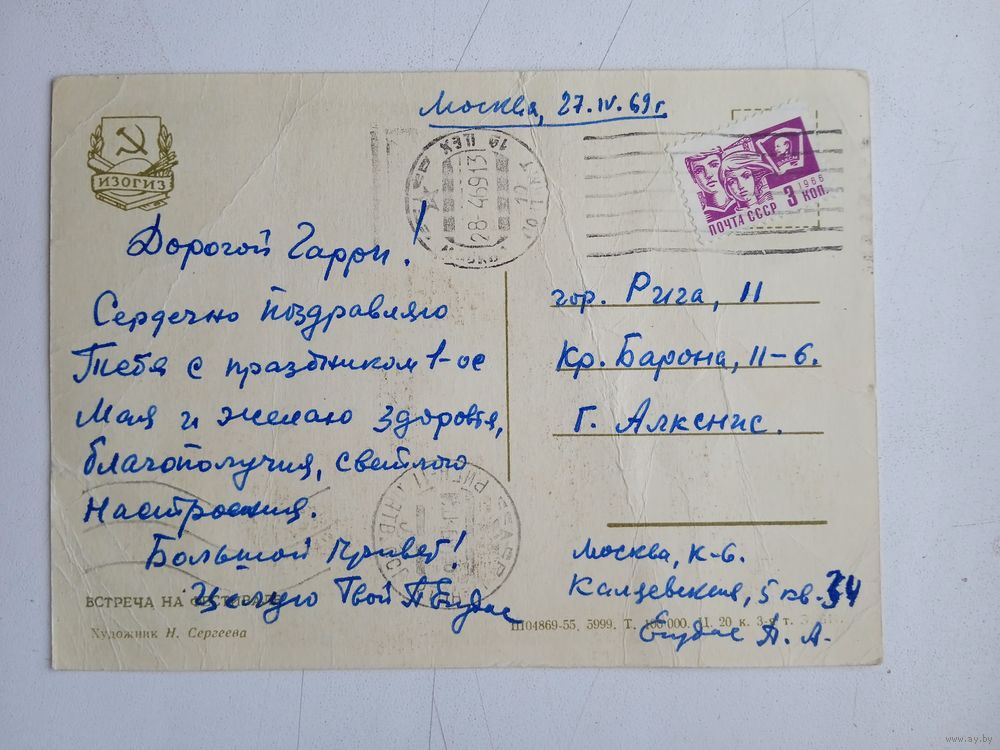 Москва, 27.IV.69 г.
ИЗОГИЗ
28-46913
1966
3 КОП.
ПОЧТА СССР
Дорогой Гарри!
Сердечно поздравляю
Тебя с праздником 1-ое
Мая и желаю здоровья,
благополучия, светлого
настроения.
Большой привет!
Целую Твой
ВСТРЕЧА НА ФЕСТИВАЛЕ
Художник Н. Сергеева
гор. Рига, 11
Кр. Барона, 11-6.
Г. Алкснис.
Москва, К-6.
5 кв. 34
А. А.
Ш04869-55. 5999. Т. 100 000. Ц. 20 к. 3-я т.
www.ay.by